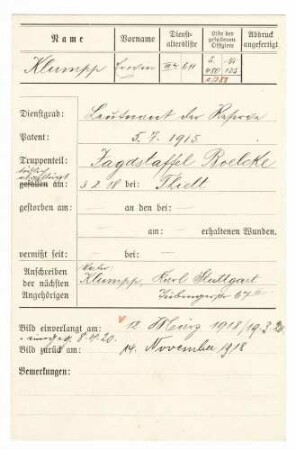 Name Vorname Dienst-altersliste Liste der gefallenen Offiziere Abdruck angefertigt
Klumpp Erwin
Dienstgrad: Leutnant der Reserve
Patent: 5. 7. 1915
Truppenteil: Jagdstaffel Boelcke
tödlich abgestürzt
gefallen am: 3 2. 18 bei: Thielt
gestorben am: — an den bei: —
— am: — erhaltenen Wunden.
vermißt seit: — bei: —
Anschreiben der nächsten Angehörigen
Vater
Klumpp, Karl Stuttgart
Tübingerstr
Bild einverlangt am: 12 März 1918 / 19. 3. 20.
8. 4. 20.
Bild zurück am: 14. November 1918
Bemerkungen: